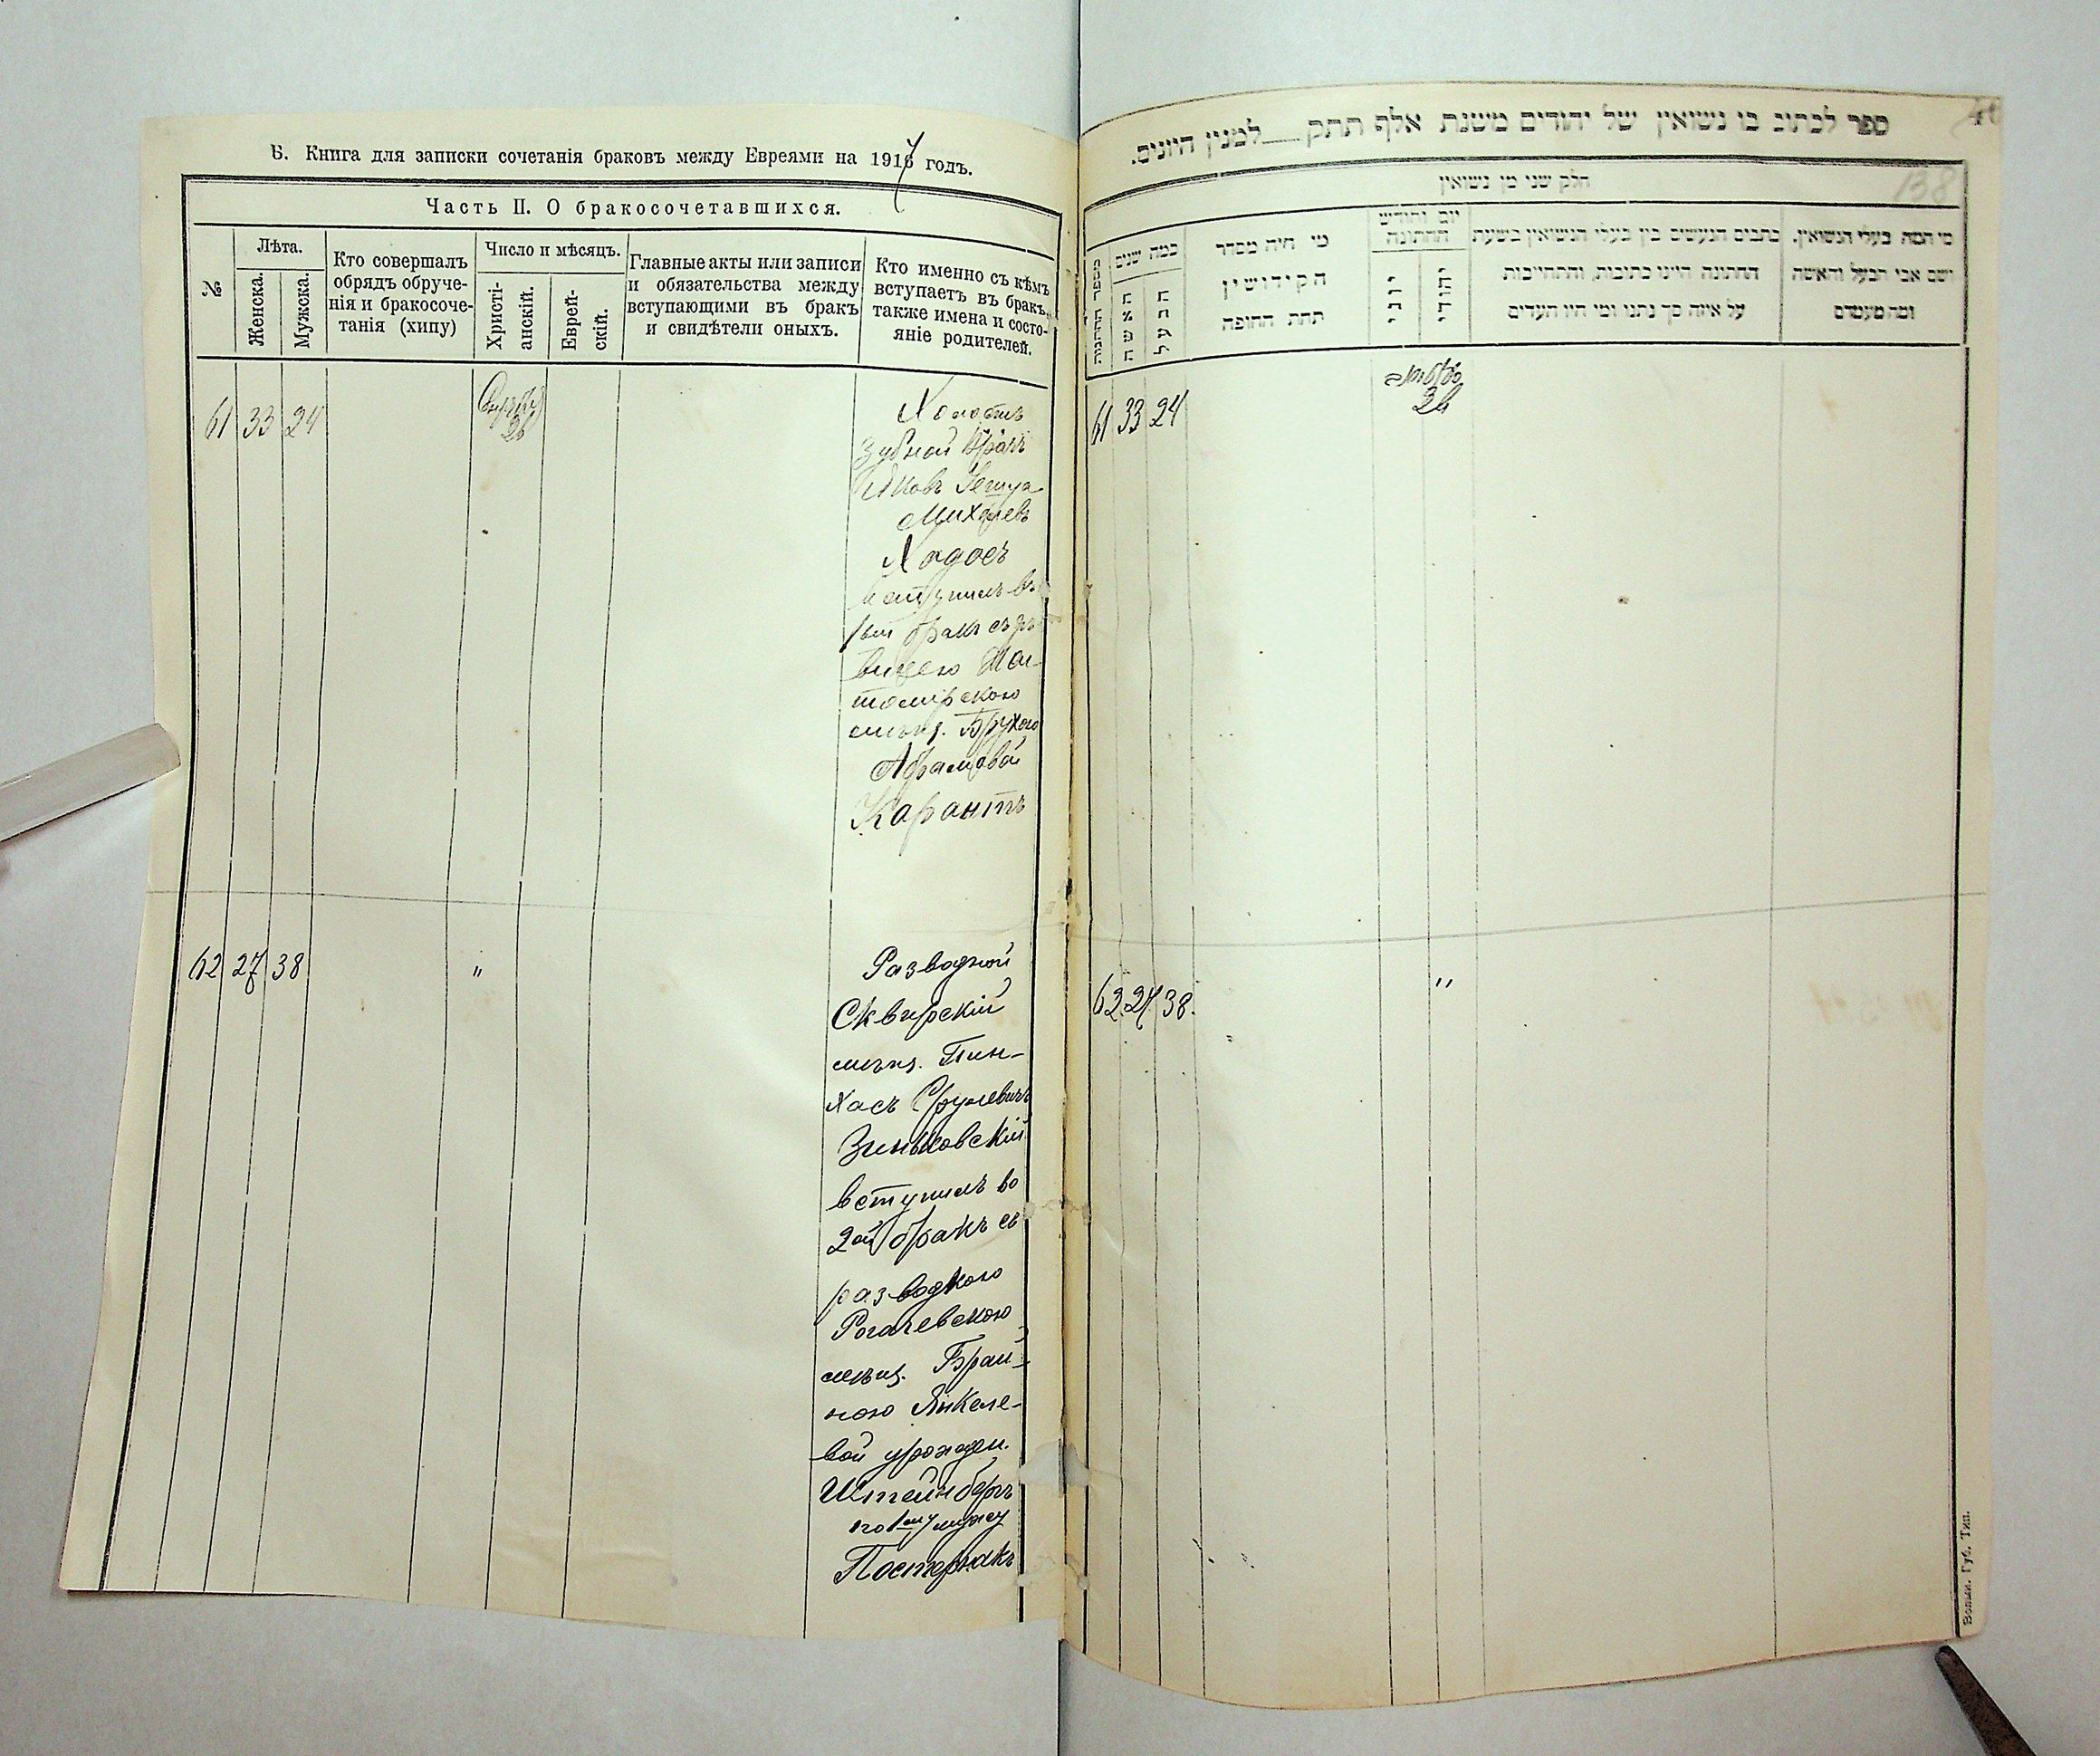 В. Книга для записки сочетанія браковъ между Евреями на 1917 годъ.
Часть II. О бракосочетавшихся.
№
Лѣта.
Женска.
Мужска.
Кто совершалъ
обрядъ обруче-
нія и бракосоче-
танія (хипу)
Число и мѣсяцъ.
Христі-
анскій.
Еврей-
скій.
Главные акты или записи
и обязательства между
вступающими въ бракъ
и свидѣтели оныхъ.
Кто именно съ кѣмъ
вступаетъ въ бракъ,
также имена и состо-
яніе родителей.
61 33 24
26
Холостъ
Зубной Врачъ
Яковъ
Хадосъ
вступилъ въ
1ый бракъ съ дѣ-
вицею Жи-
томірскою
мѣщ. Брухою
Абрамовой
Карантъ
62 27 38
"
Разводной
Сквирскій
мѣщ. Пин-
хасъ Срулевичъ
Зиньковскій
вступилъ во
2ой бракъ съ
разводною
Рогачевскою
мѣщ. Брай-
ною Янкеле-
вой урожден.
Штейнбергъ
по 1му мужу
Постернакъ
ספר לכתוב בו נשואין של יהודים משנת אלף תתק למנין היונים.
138
חלק שני מן נשואין
מספר החתונות
כמה שנים
האשה
הבעל
מי היה מסדר
הקידושין
תחת החופה
יום וחודש
החתונה
יוני
יהודי
כתבים הנעשים בין בעלי הנשואין בשעת
החתונה היינו כתובות, והתחייבות
על איזה סך נתנו ומי היו העדים
מי המה בעלי הנשואין,
ושם אבי הבעל והאשה
ומה מעמדם
61 33 24
26
62 27 38.
"
Волын. Губ. Тип.